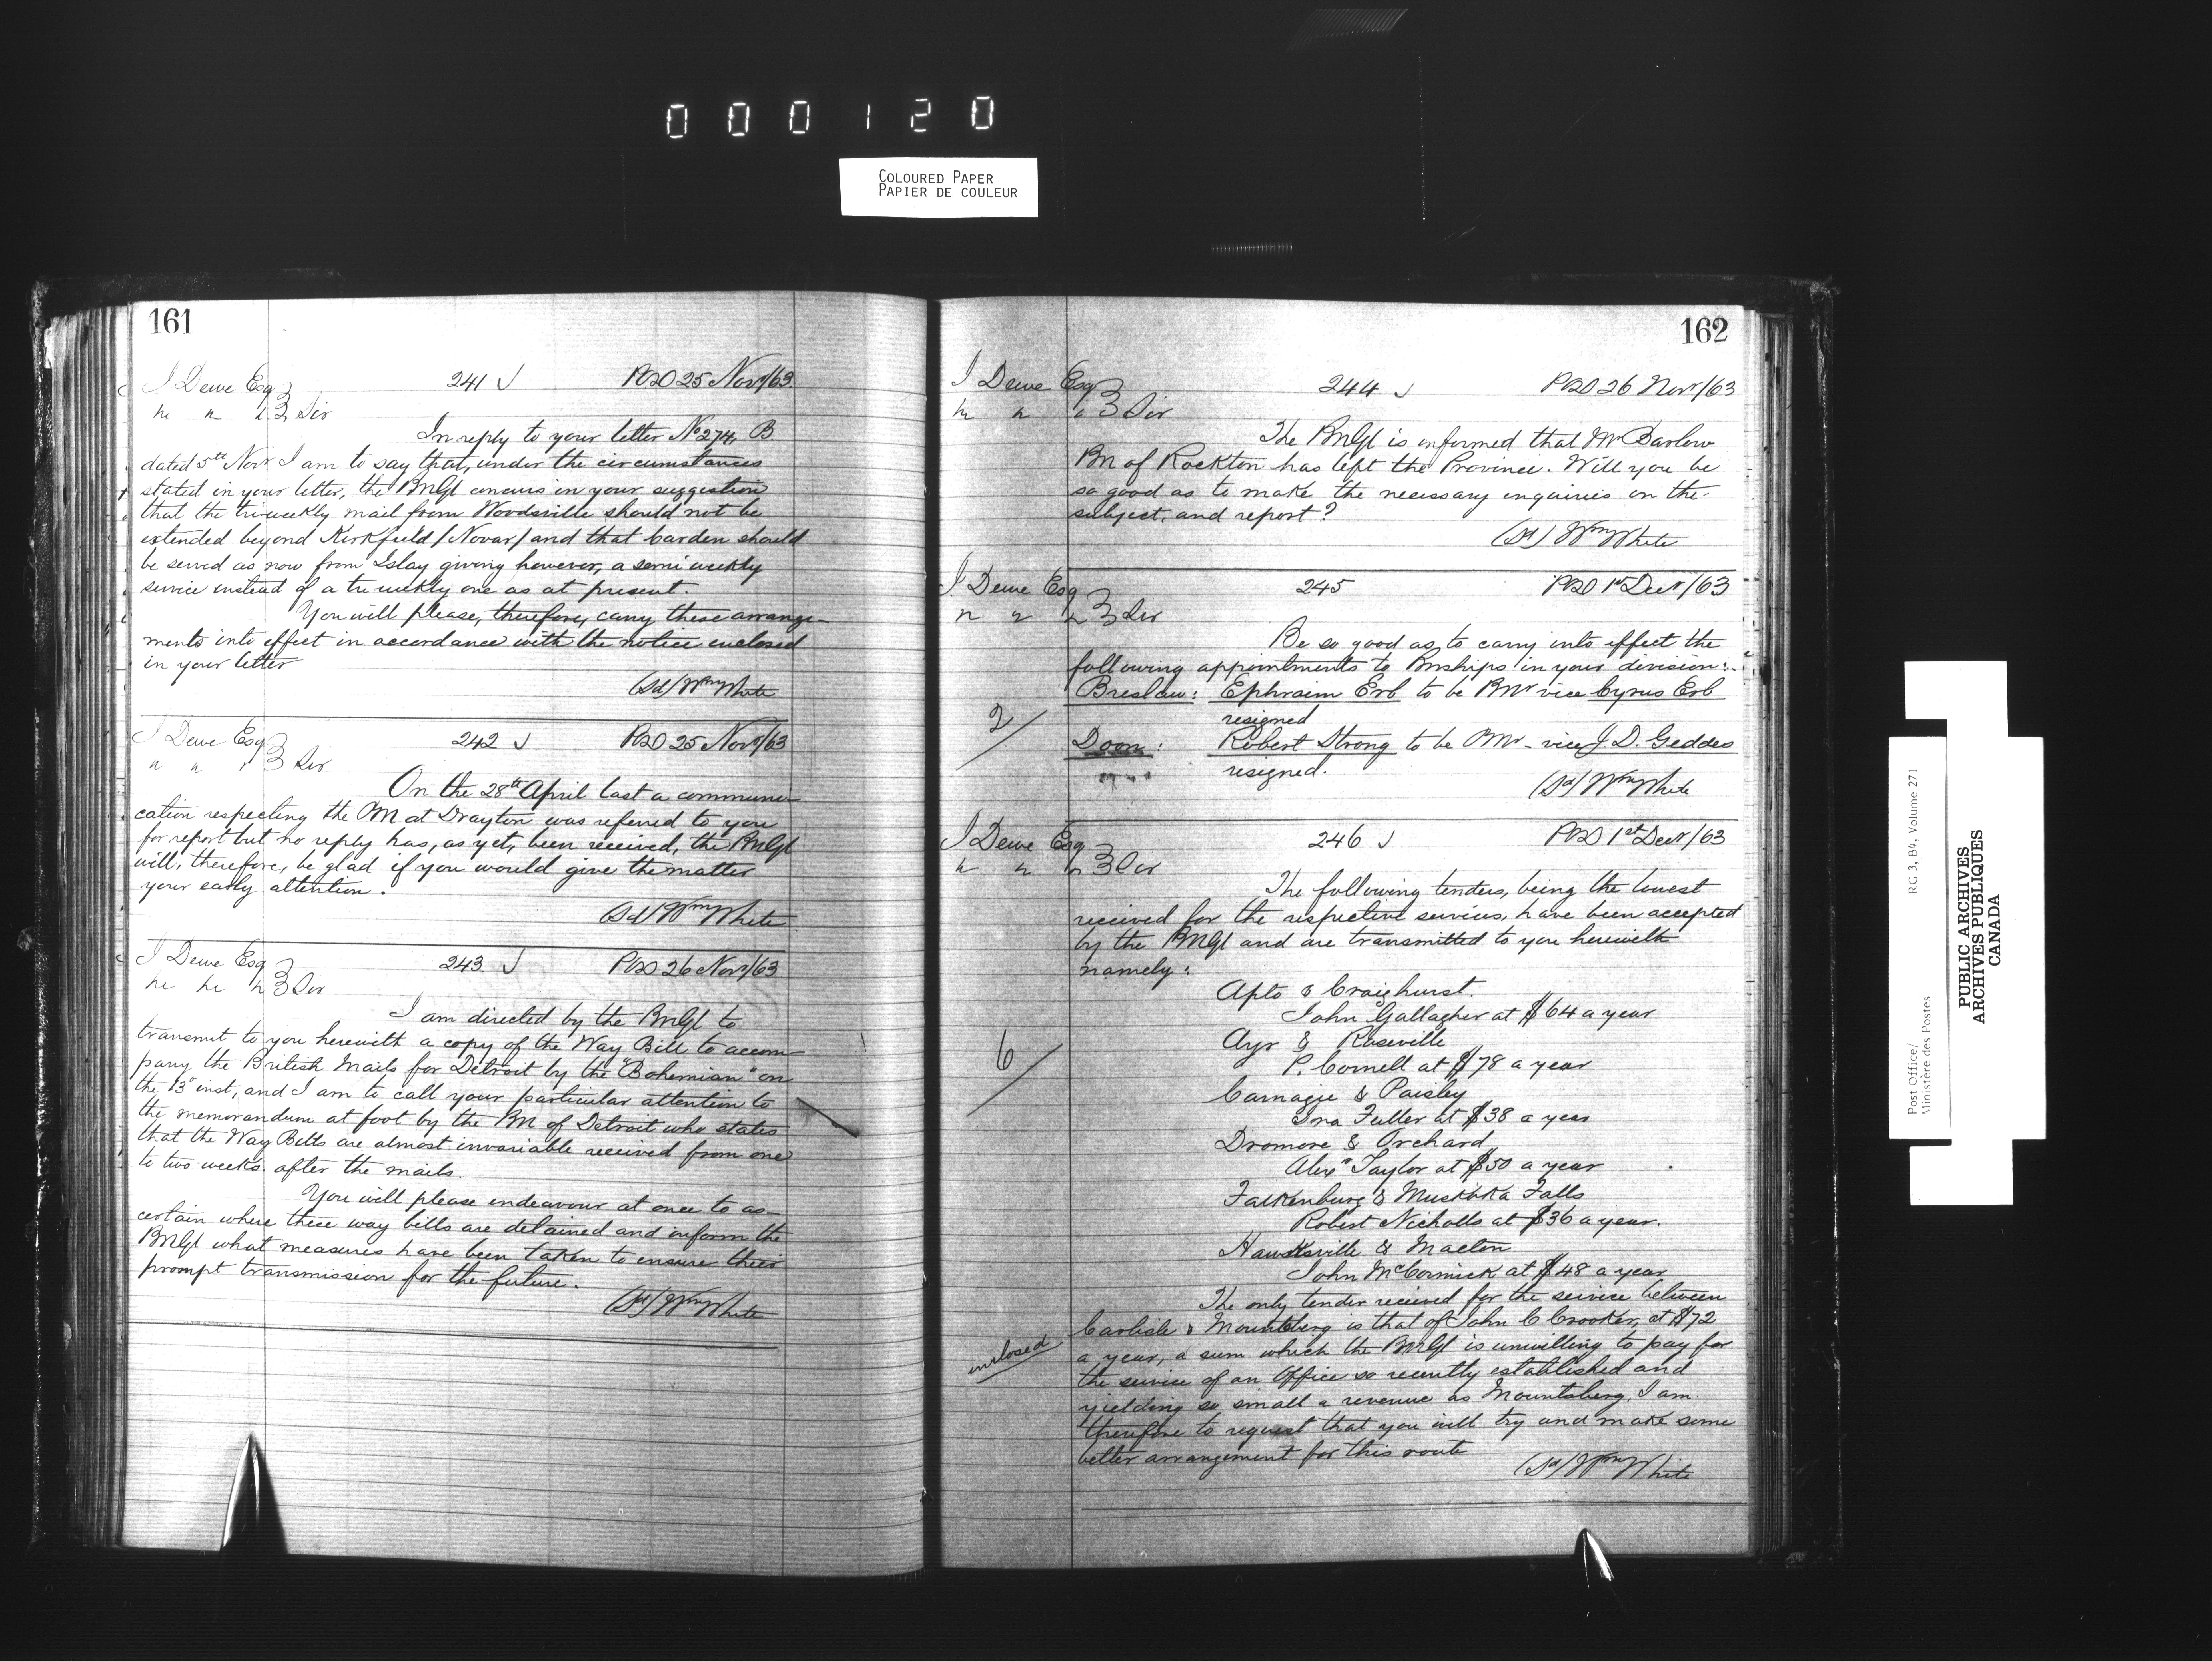 000120
COLOURED PAPER
PAPIER DE COULEUR
161
J Dewe Esq 241 J POD 25 Novr/63
" " " Sir
In reply to your letter No 274, B
dated 5th Novr I am to say that, under the circumstances
stated in your letter, the PMGl concurs in your suggestion
that the tri-weekly mail from Woodsville should not be
extended beyond Kirkfield /Novar/ and that Carden should
be served as now from Islay giving however, a semi weekly
service instead of a tri weekly one as at present.
You will please, therefore, carry these arrange-
ments into effect in accordance with the notice enclosed
in your letter
(Sd) Wm White
J Dewe Esq 242 J POD 25 Novr/63
" " " Sir
On the 28th April last a communi-
cation respecting the PM at Drayton was referred to you
for report but no reply has, as yet, been received, the PMGl
will, therefore, be glad if you would give the matter
your early attention.
(Sd) Wm White
J Dewe Esq 243 J POD 26 Novr/63
" " " Sir
I am directed by the PMGl to
transmit to you herewith a copy of the Way Bill to accom-
pany the British Mails for Detroit by the "Bohemian" on
the 13th inst, and I am to call your particular attention to
the memorandum at foot by the PM of Detroit who states
that the Way Bills are almost invariable received from one
to two weeks after the mails.
You will please endeavour at once to as-
certain where these way bills are detained and inform the
PMGl what measures have been taken to ensure their
prompt transmission for the future.
(Sd) Wm White
162
J Dewe Esq 244 J POD 26 Novr/63
" " " Sir
The PMGl is informed that Mr Barlow
PM of Rockton has left the Province. Will you be
so good as to make the necessary inquiries on the
subject, and report?
(Sd) Wm White
J Dewe Esq 245 POD 1st Decr/63
" " " Sir
Be so good as to carry into effect the
following appointments to PMships in your division:
Breslau: Ephraim Erb to be PMr vice Cyrus Erb
resigned
2/
Doon: Robert Strong to be PMr - vice J. D. Geddes
resigned.
(Sd) Wm White
J Dewe Esq 246 J POD 1st Decr/63
" " " Sir
The following tenders, being the lowest
received for the respective services, have been accepted
by the PMGl and are transmitted to you herewith
namely:
Apto & Craighurst.
John Gallagher at $64 a year
Ayr & Roseville
6/
P. Cornell at $78 a year
Carnagie & Paisley
Ira Fuller at $38 a year
Dromore & Orchard
Alexr Taylor at $50 a year
Falkenburg & Muskoka Falls
Robert Nicholls at $36 a year.
Hawksville & Macton
John McCormick at $48 a year
The only tender recieved for the service between
Carlisle & Mountsberg is that of John C Crooker, at $72
inclosed
a year, a sum which the PMGl is unwilling to pay for
the service of an Office so recently established and
yielding so small a revenue as Mountsberg. I am
therefore to request that you will try and make some
better arrangement for this route
(Sd) Wm White
Post Office/
Ministère des Postes
RG 3, B4, Volume 271
PUBLIC ARCHIVES
ARCHIVES PUBLIQUES
CANADA